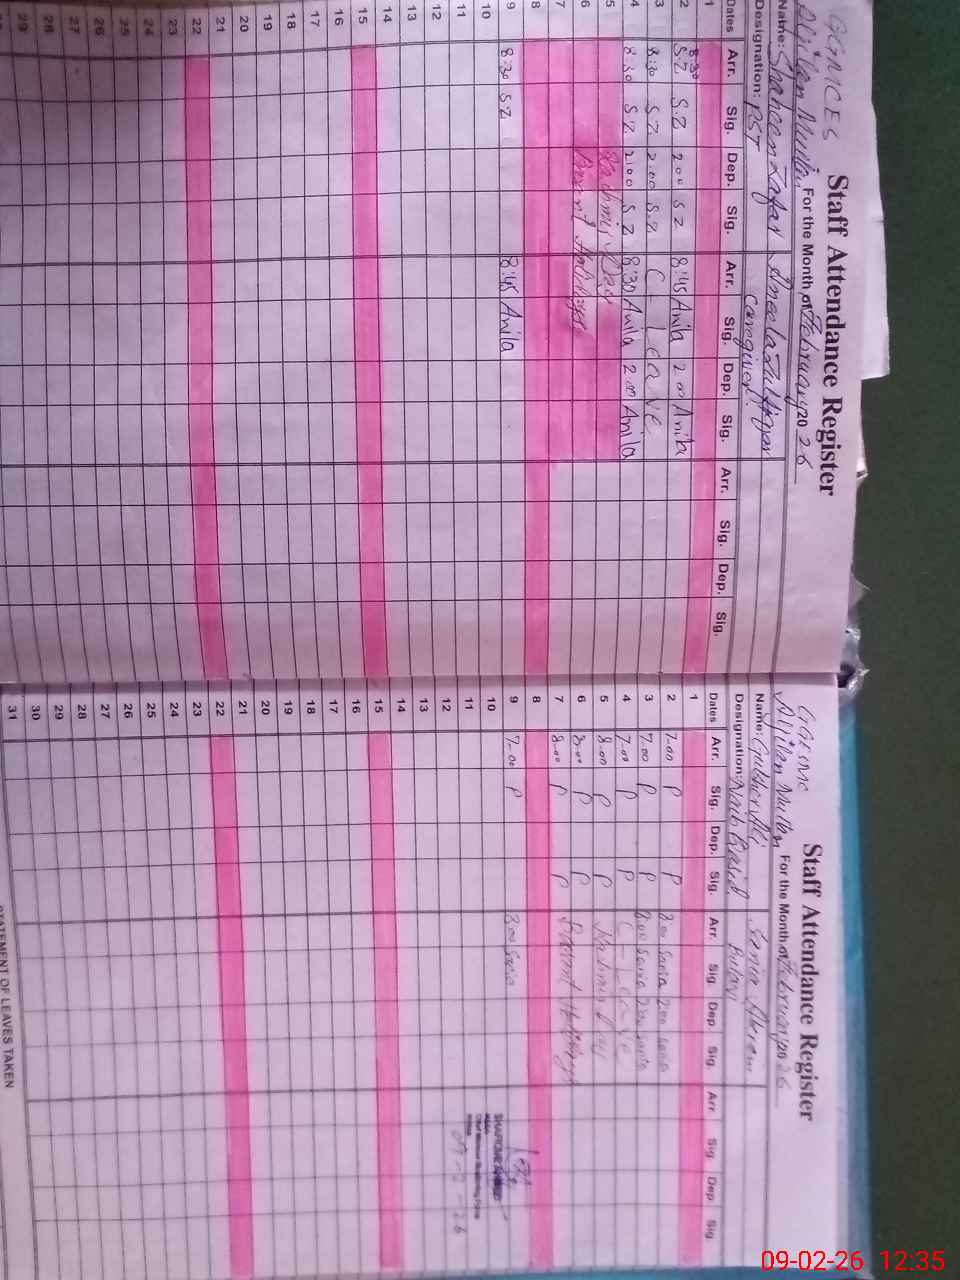 Staff Attendance Register
For the Month of February 2026
Name: Shaheen Zafar
Designation: PST
Caregiver
Dates Arr. Sig. Dep. Sig. Arr. Sig. Dep. Sig. Arr. Sig. Dep. Sig.
1
2 8:30 S.Z S.Z 2.00 S.Z 8:45 Anila 2.00 Anila
3 8:30 S.Z 2.00 S.Z C - Leave
4 8:30 S.Z 2:00 S.Z 8:30 Anila 2.00 Anila
5 Kashmir Day
6 Basant Holidays
7
8
9 8:30 S.Z 8:45 Anila
10
11
12
13
14
15
16
17
18
19
20
21
22
23
24
25
26
27
28
29
Staff Attendance Register
For the Month of February 2026
Name:
Designation: Naib Qasid
Dates Arr. Sig. Dep. Sig. Arr. Sig. Dep. Sig. Arr. Sig. Dep. Sig.
1
2 7.00 P P 8.00 Sania 2.00 Sania
3 7.00 P P 8.00 Sania 2.00 Sania
4 7.00 P P C - Leave
5 8.00 P P Kashmir Day
6 8.00 P P Basant Holidays
7 8.00 P P
8
9 7.00 P 8.00 Sania
10
11
12
13
14
15
16
17
18
19
20
21
22
23
24
25
26
27
28
29
30
31
09-2-26
STATEMENT OF LEAVES TAKEN
09-02-26 12:35